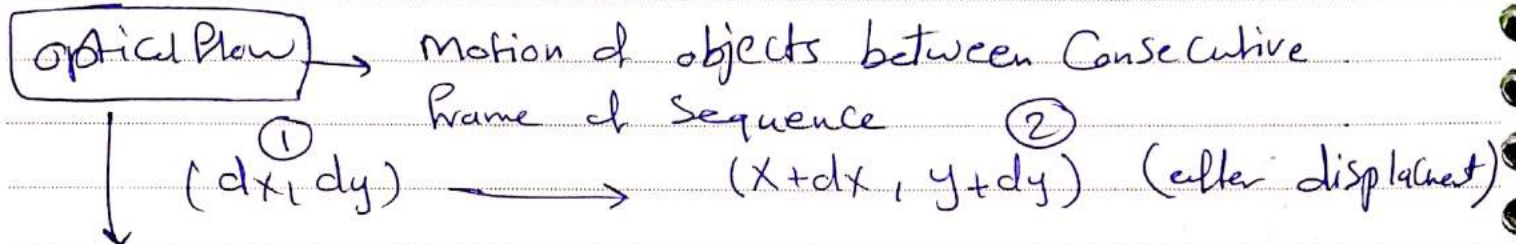 optical Flow → Motion of objects between Consecutive
frame of Sequence
① ②
(dx, dy) → (x+dx, y+dy) (after displacment)